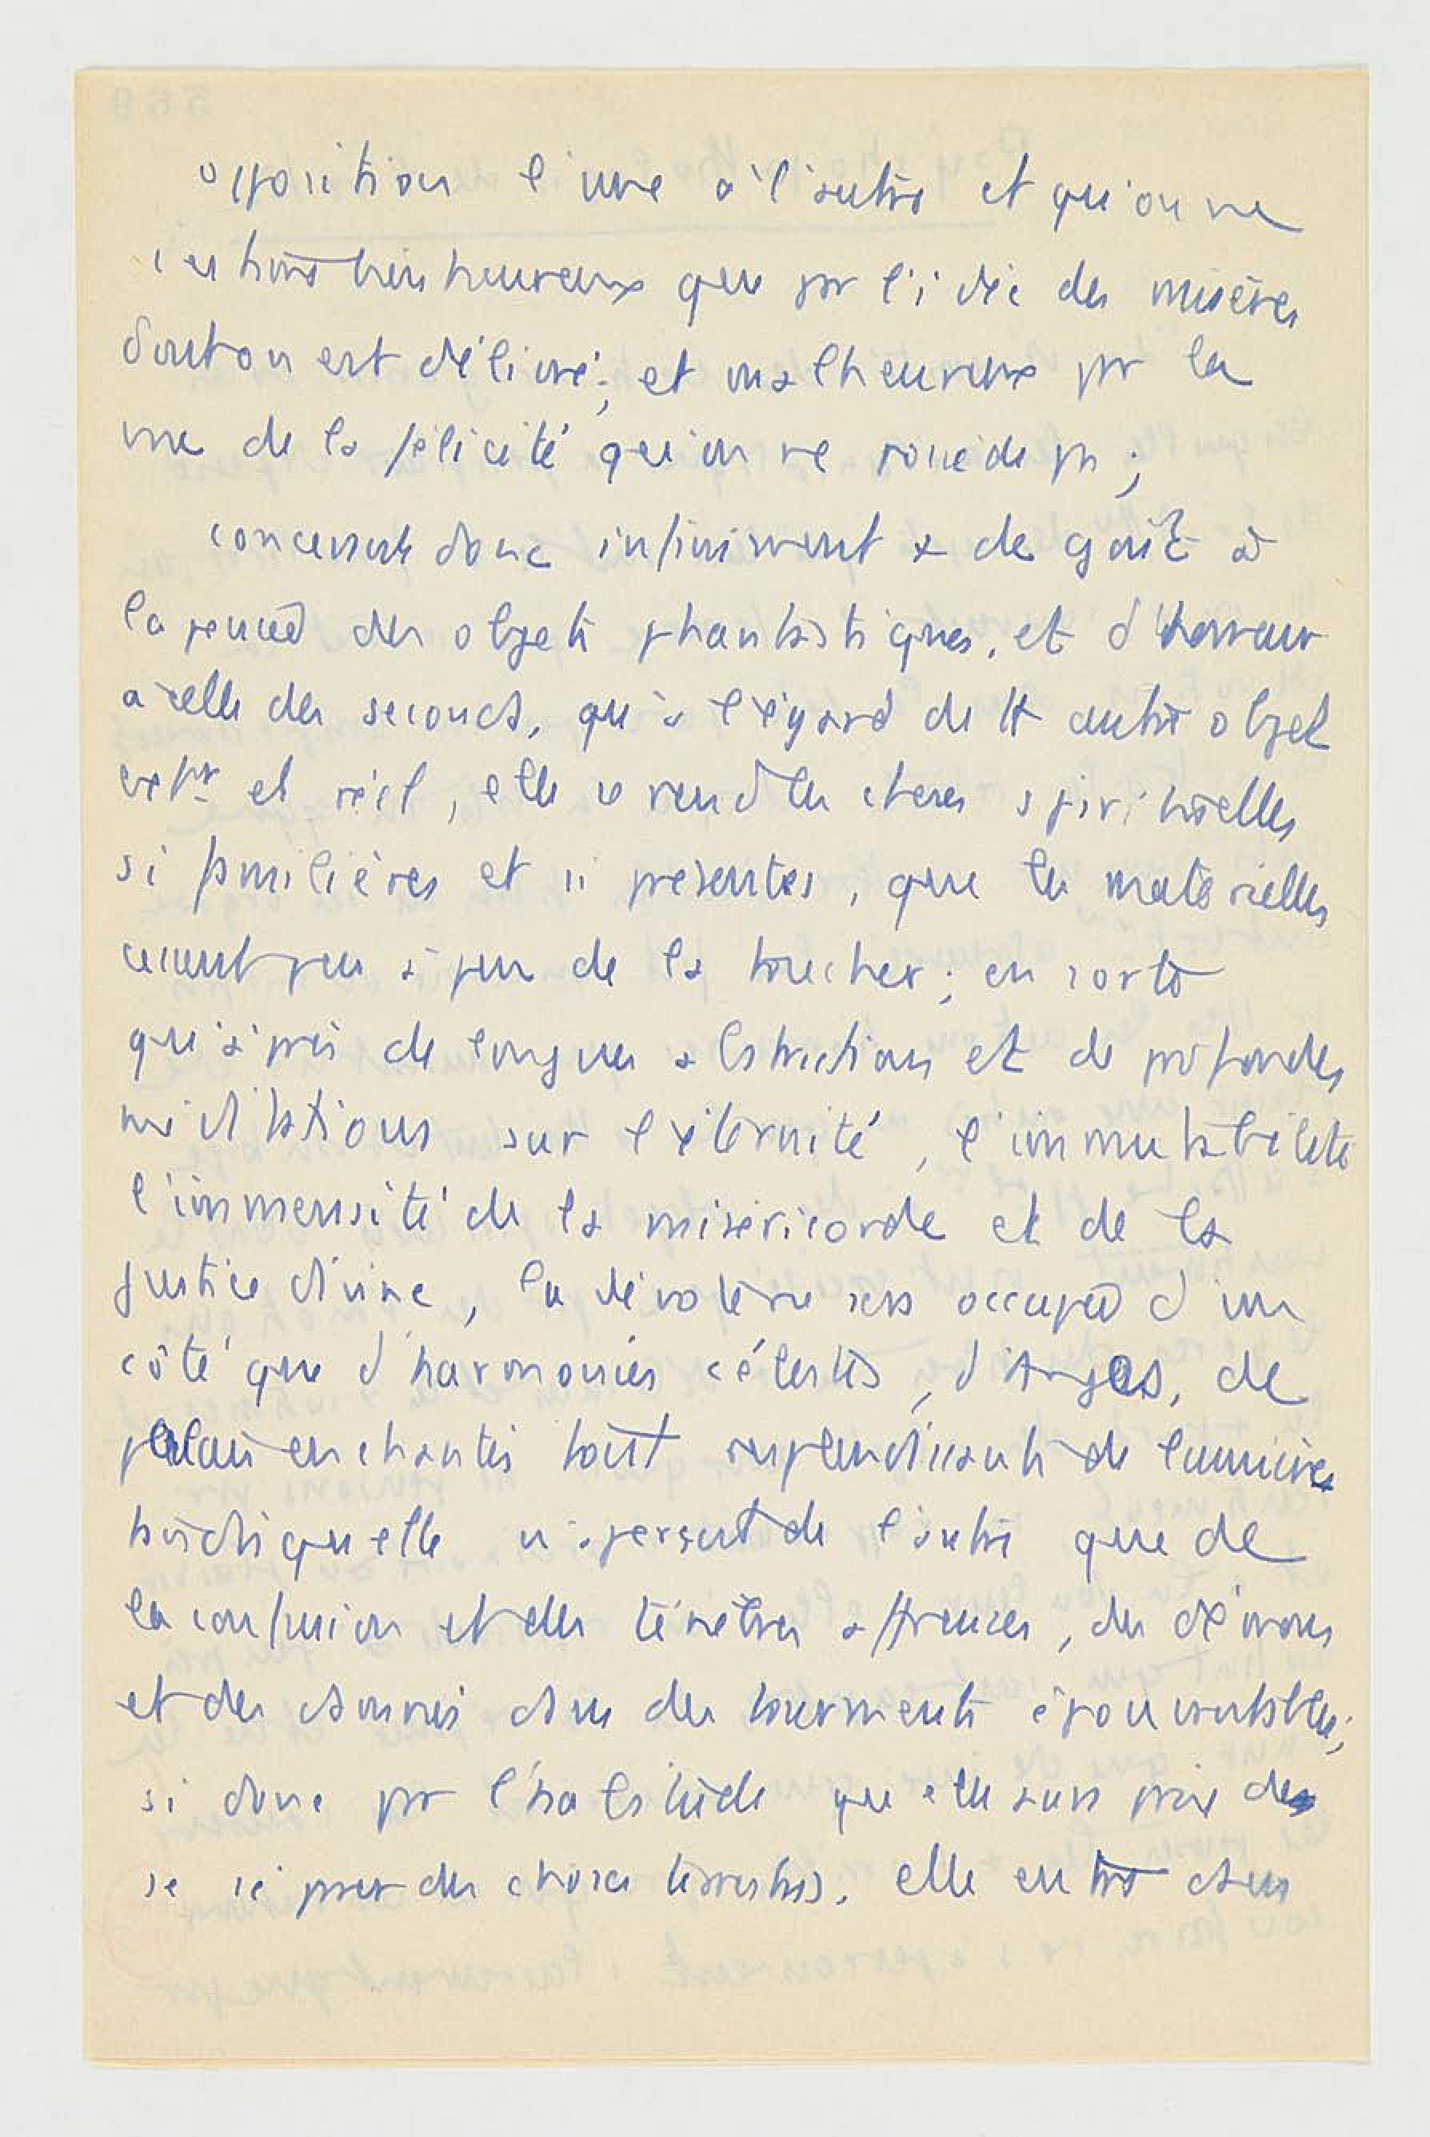 opposition l'une à l'autre et qu'on ne
s'estime bienheureux que pr l'idée des misères
dont on est délivré; et malheureux pr la
vue de la félicité qu'on ne possède ps;
concevant donc infiniment + de goût à
la pensée des objets phantastiques, et d'horreur
à celle des seconds, qu'à l'égard de tt autre objet
et réel, elle se rend les choses spirituelles
si familières et si présentes, que les matérielles
cessent peu à peu de la toucher; en sorte
qu'après de longues abstractions et de profondes
méditations sur l'éternité, l'immutabilité
l'immensité de la miséricorde et de la
justice divine, la dévote ne sera occupée d'un
côté que d'harmonies célestes, d'Anges, de
palais enchantés tout resplendissants de lumières
tandis qu'elle n'aperçut de l'autre que de
la confusion et des ténèbres affreuses, des démons
et des damnés dans des tourments épouvantables;
si donc pr l'habitude qu'elle aura prise de
se séparer des choses terrestres, elle entre dans